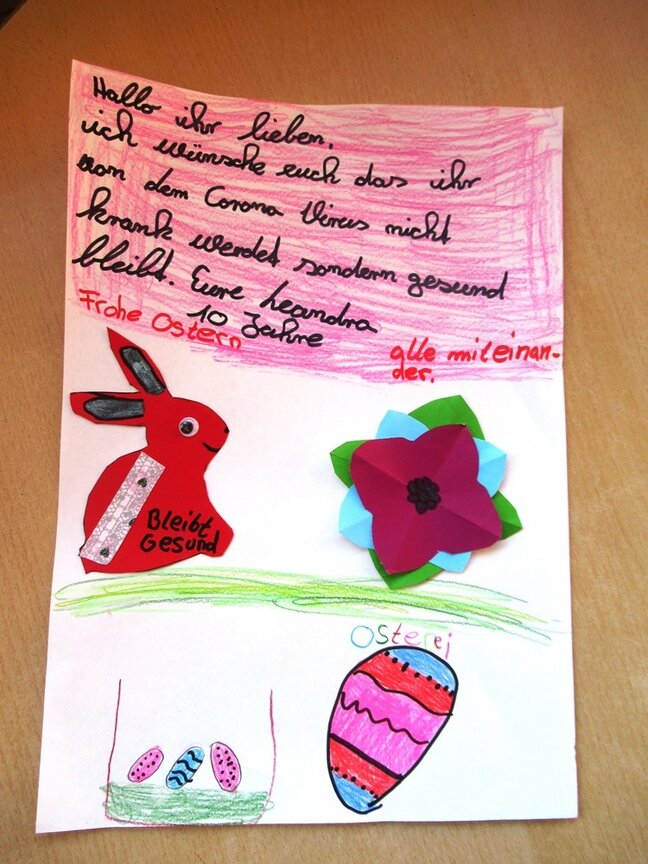 Hallo ihr lieben,
ich wünsche euch das ihr
von dem Corona Virus nicht
krank werdet sondern gesund
bleibt. Eure Leandra
10 Jahre
Frohe Ostern
alle miteinan-
der.
Bleibt
Gesund
Osterei